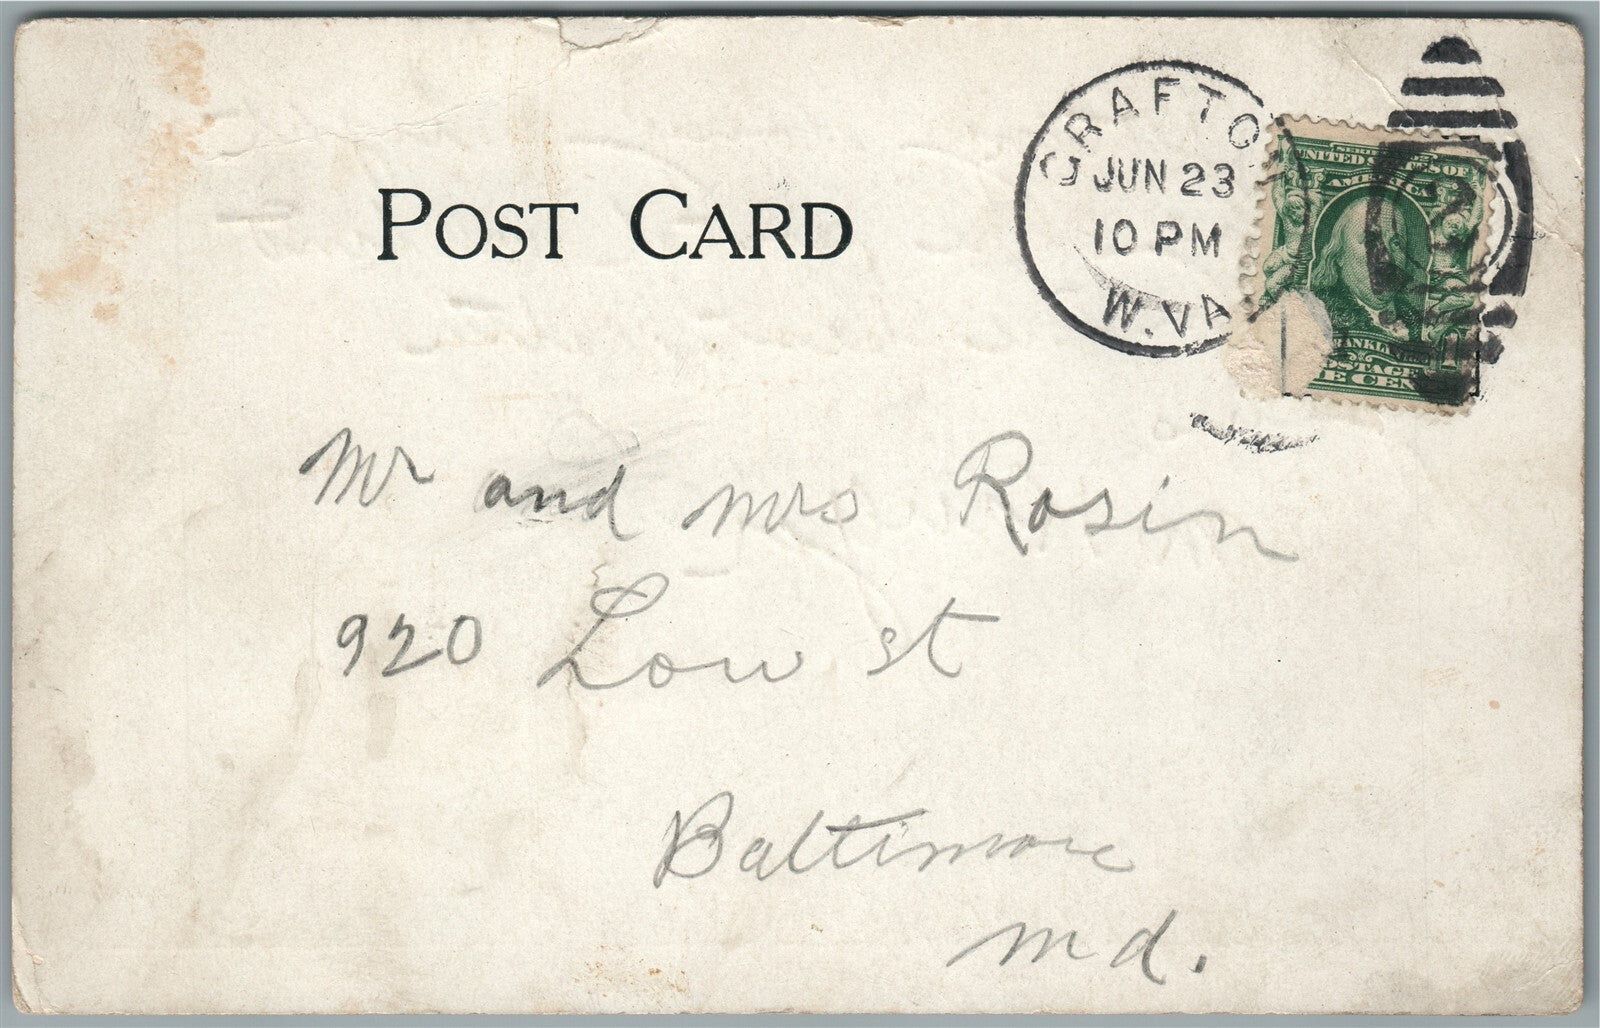 POST CARD
GRAFTON
JUN 23
10 PM
W.VA
SERIES 1902
UNITED STATES OF
AMERICA
FRANKLIN
POSTAGE
ONE CENT
Mr and Mrs Rosin
920 Low st
Baltimore
Md.